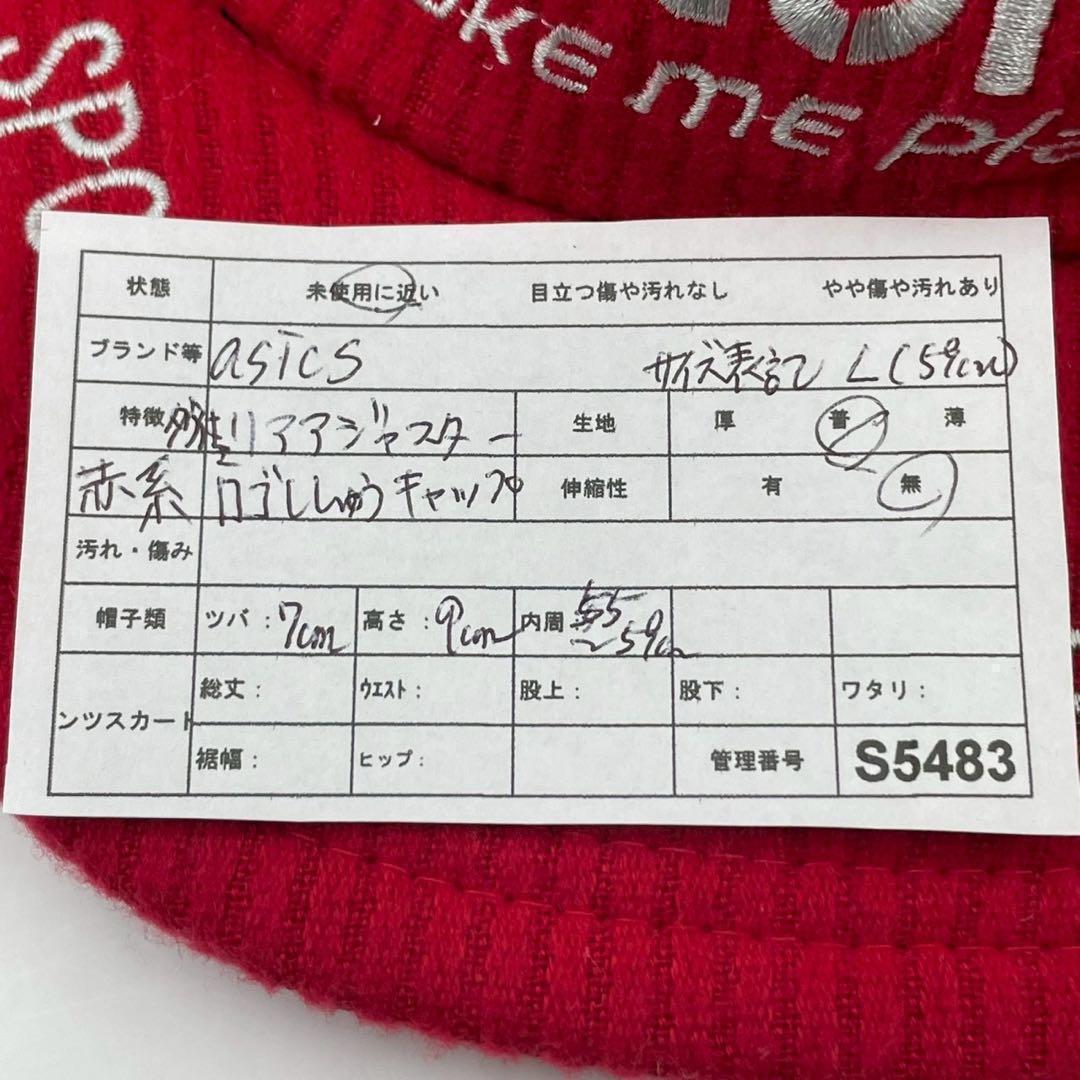 SPO
OKE ME pla
状態 未使用に近い 目立つ傷や汚れなし やや傷や汚れあり
ブランド等 asics サイズ表記 L(59cm)
特徴 リアアジャスター 生地 厚 普 薄
赤系 ロゴししゅうキャップ 伸縮性 有 無
汚れ・傷み
帽子類 ツバ:7cm 高さ:9cm 内周 55~59cm
ンツスカート 総丈: ウエスト: 股上: 股下: ワタリ:
裾幅: ヒップ: 管理番号 S5483